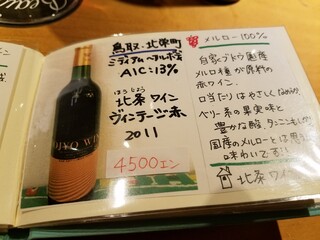 鳥取・北栄町
ミディアム〜フルボディ
A1C:13%
ほうじょう
北条ワイン
ヴィンテージ赤
2011
4500エン
HOJYO WINE
メルロー100%
自家ブドウ園産
メルロ種が原料の
赤ワイン。
口当たりはやさしくなめらか
ベリー系の果実味と
豊かな酸、タンニンもしっか
国産のメルローとは思え
味わいです!!
北条ワ